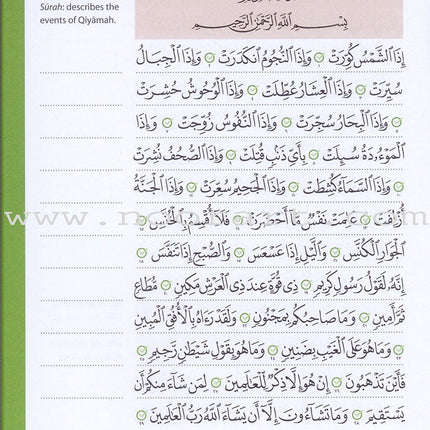 Sūrah: describes the
events of Qiyāmah.
بِسْمِ اللَّهِ الرَّحْمَٰنِ الرَّحِيمِ
إِذَا الشَّمْسُ كُوِّرَتْ وَإِذَا النُّجُومُ انكَدَرَتْ وَإِذَا الْجِبَالُ
سُيِّرَتْ وَإِذَا الْعِشَارُ عُطِّلَتْ وَإِذَا الْوُحُوشُ حُشِرَتْ
وَإِذَا الْبِحَارُ سُجِّرَتْ وَإِذَا النُّفُوسُ زُوِّجَتْ وَإِذَا
الْمَوْءُدَةُ سُئِلَتْ بِأَيِّ ذَنْبٍ قُتِلَتْ وَإِذَا الصُّحُفُ نُشِرَتْ
وَإِذَا السَّمَاءُ كُشِطَتْ وَإِذَا الْجَحِيمُ سُعِّرَتْ وَإِذَا الْجَنَّةُ
أُزْلِفَتْ عَلِمَتْ نَفْسٌ مَّا أَحْضَرَتْ فَلَا أُقْسِمُ بِالْخُنَّسِ
الْجَوَارِ الْكُنَّسِ وَاللَّيْلِ إِذَا عَسْعَسَ وَالصُّبْحِ إِذَا تَنَفَّسَ
إِنَّهُ لَقَوْلُ رَسُولٍ كَرِيمٍ ذِي قُوَّةٍ عِندَ ذِي الْعَرْشِ مَكِينٍ مُّطَاعٍ
ثَمَّ أَمِينٍ وَمَا صَاحِبُكُم بِمَجْنُونٍ وَلَقَدْ رَآهُ بِالْأُفُقِ الْمُبِينِ
وَمَا هُوَ عَلَى الْغَيْبِ بِضَنِينٍ وَمَا هُوَ بِقَوْلِ شَيْطَانٍ رَّجِيمٍ
فَأَيْنَ تَذْهَبُونَ إِنْ هُوَ إِلَّا ذِكْرٌ لِّلْعَالَمِينَ لِمَن شَاءَ مِنكُمْ أَن
يَسْتَقِيمَ وَمَا تَشَاءُونَ إِلَّا أَن يَشَاءَ اللَّهُ رَبُّ الْعَالَمِينَ